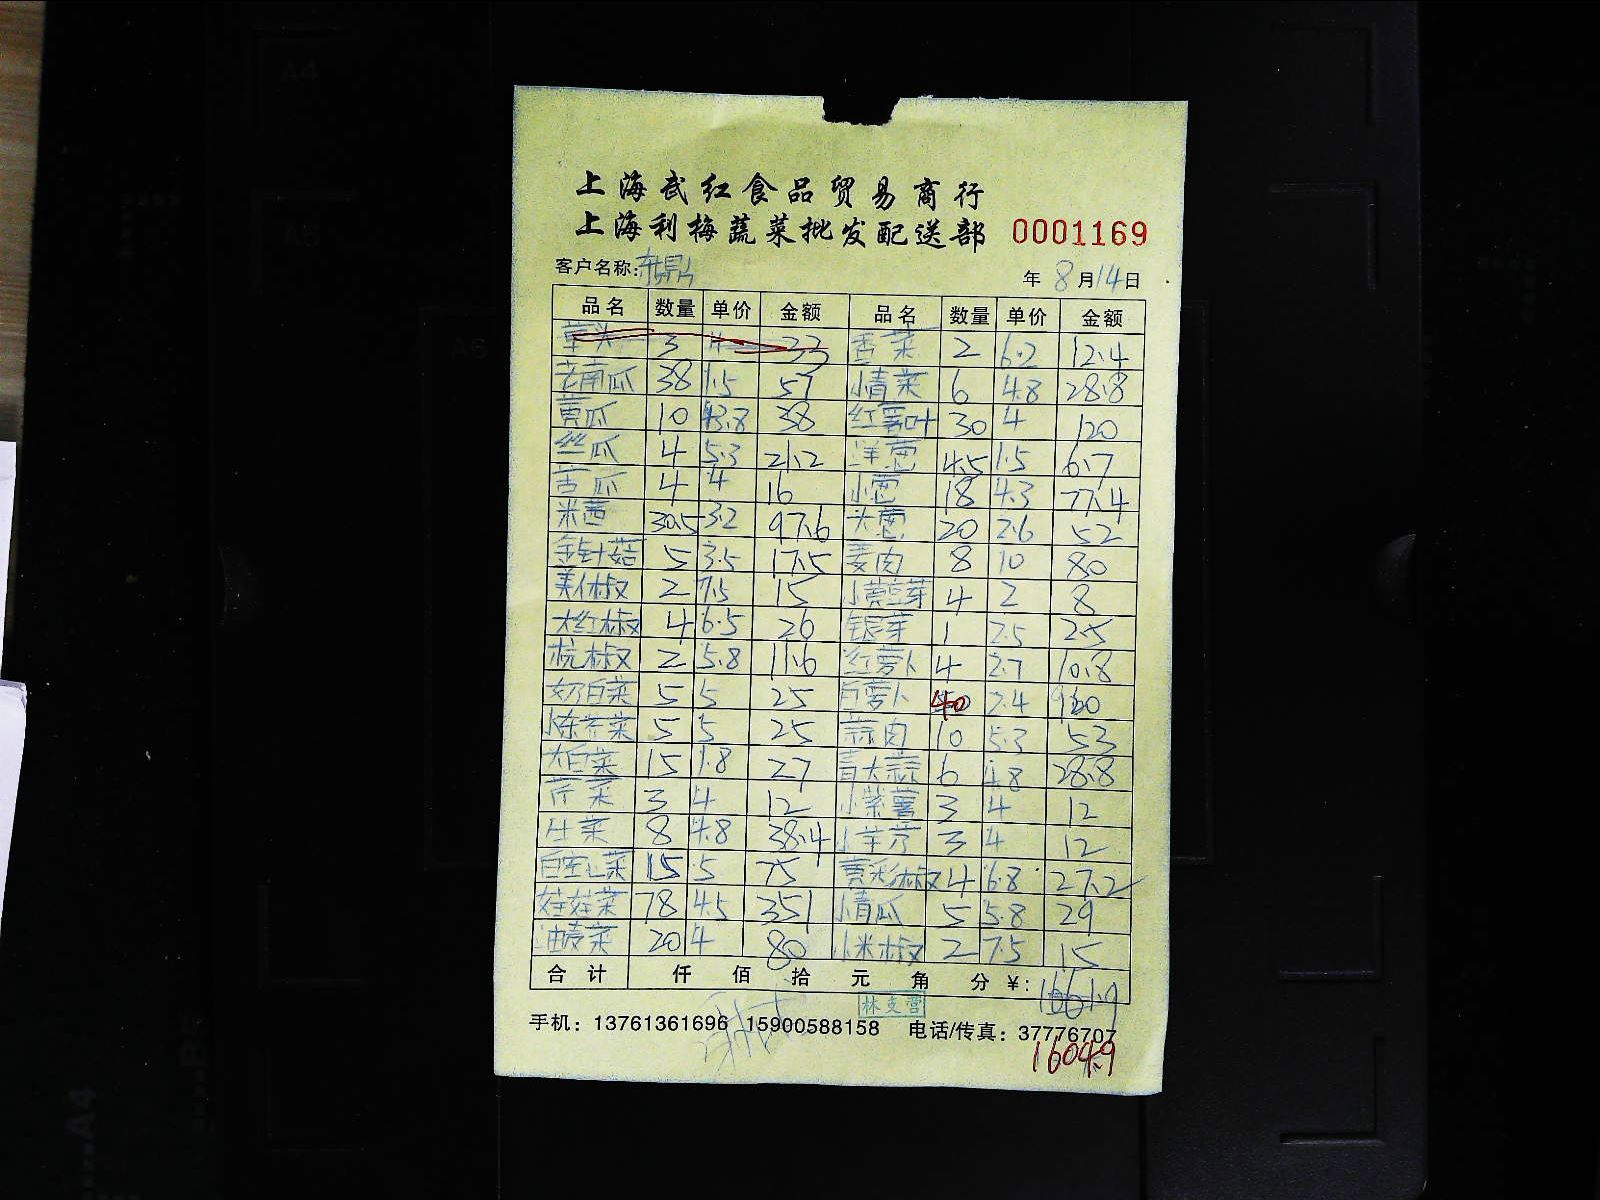 上海武红食品贸易商行
上海利梅蔬菜批发配送部 0001169
客户名称: 年 8 月 14 日
品名 数量 单价 金额 品名 数量 单价 金额
草头 3 33 香菜 2 6.2 12.4
老南瓜 38 1.5 57 小青菜 6 4.8 28.8
黄瓜 10 3.8 38 红薯叶 30 4 120
丝瓜 4 5.3 21.2 洋葱 4.5 1.5 6.7
苦瓜 4 4 16 小葱 18 4.3 77.4
米茜 30.5 3.2 97.6 大葱 20 2.6 52
金针菇 5 3.5 17.5 姜肉 8 10 80
美人椒 2 7.5 15 小黄豆芽 4 2 8
大红椒 4 6.5 26 银芽 1 2.5 2.5
杭椒 2 5.8 11.6 红萝卜 4 2.7 10.8
奶白菜 5 5 25 白萝卜 40 2.4
5 5 25 蒜肉 10 5.3 53
大白菜 15 1.8 27 青大蒜 6 4.8 28.8
芹菜 3 4 12 小紫薯 3 4 12
生菜 8 4.8 38.4 小芋艿 3 4 12
白空心菜 15 5 75 黄彩椒 4 6.8 27.2
娃娃菜 78 4.5 351 小青瓜 5 5.8 29
油麦菜 20 4 80 小米椒 2 7.5 15
合计 仟 佰 拾 元 角 分 ¥: 1661.9
林支营
手机: 13761361696 15900588158 电话/传真: 37776707
1604.9